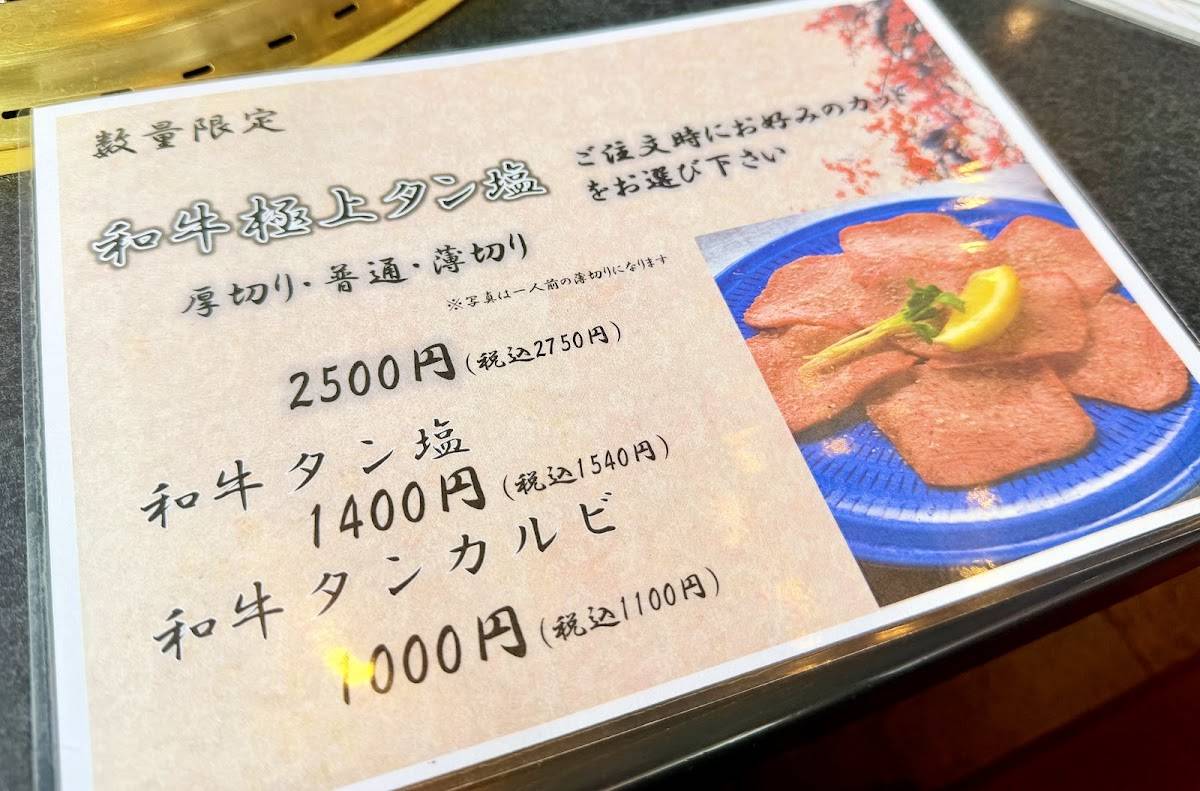 数量限定
和牛極上タン塩
ご注文時にお好みのカット
をお選び下さい
厚切り・普通・薄切り
※写真は一人前の薄切りになります
2500円(税込2750円)
和牛タン塩
1400円(税込1540円)
和牛タンカルビ
1000円(税込1100円)